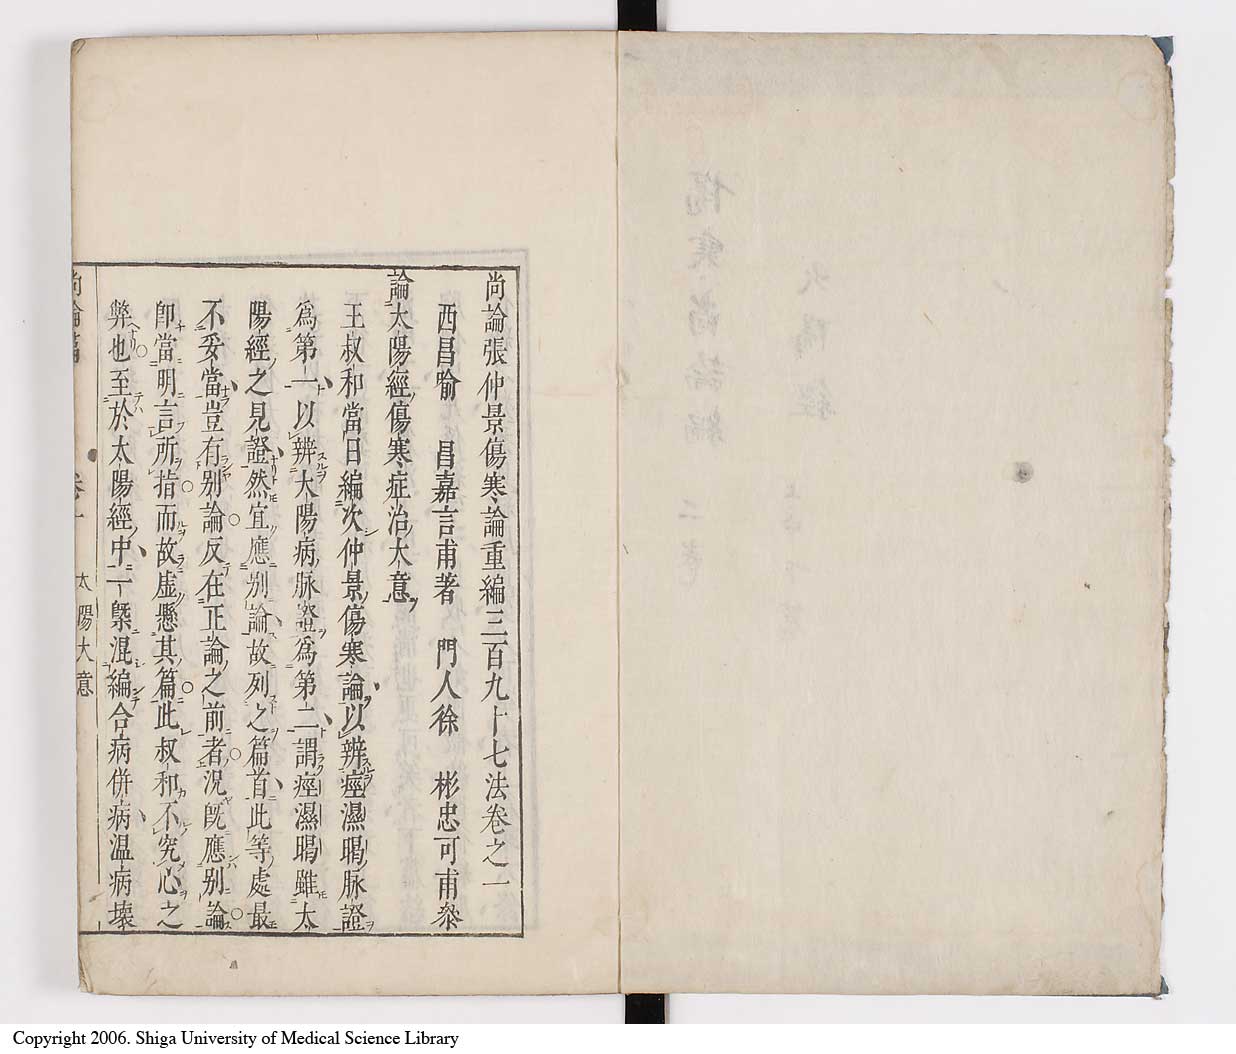 尚論張仲景傷寒論重編三百九十七法卷之一
西昌喻 昌嘉言甫著 門人徐 彬忠可甫叅
論太陽經傷寒症治大意
王叔和當日編次仲景傷寒論以辨痙濕暍脉證
爲第一以辨太陽病脉證爲第二謂痙濕暍雖太
陽經之見證然宜應别論故列之篇首此等處最
不妥當豈有别論反在正論之前者况旣應别論
卽當明言所指而故虛懸其篇此叔和不究心之
弊也至於太陽經中一槩混編合病併病温病壞
尚論篇 卷一 太陽大意
Copyright 2006. Shiga University of Medical Science Library